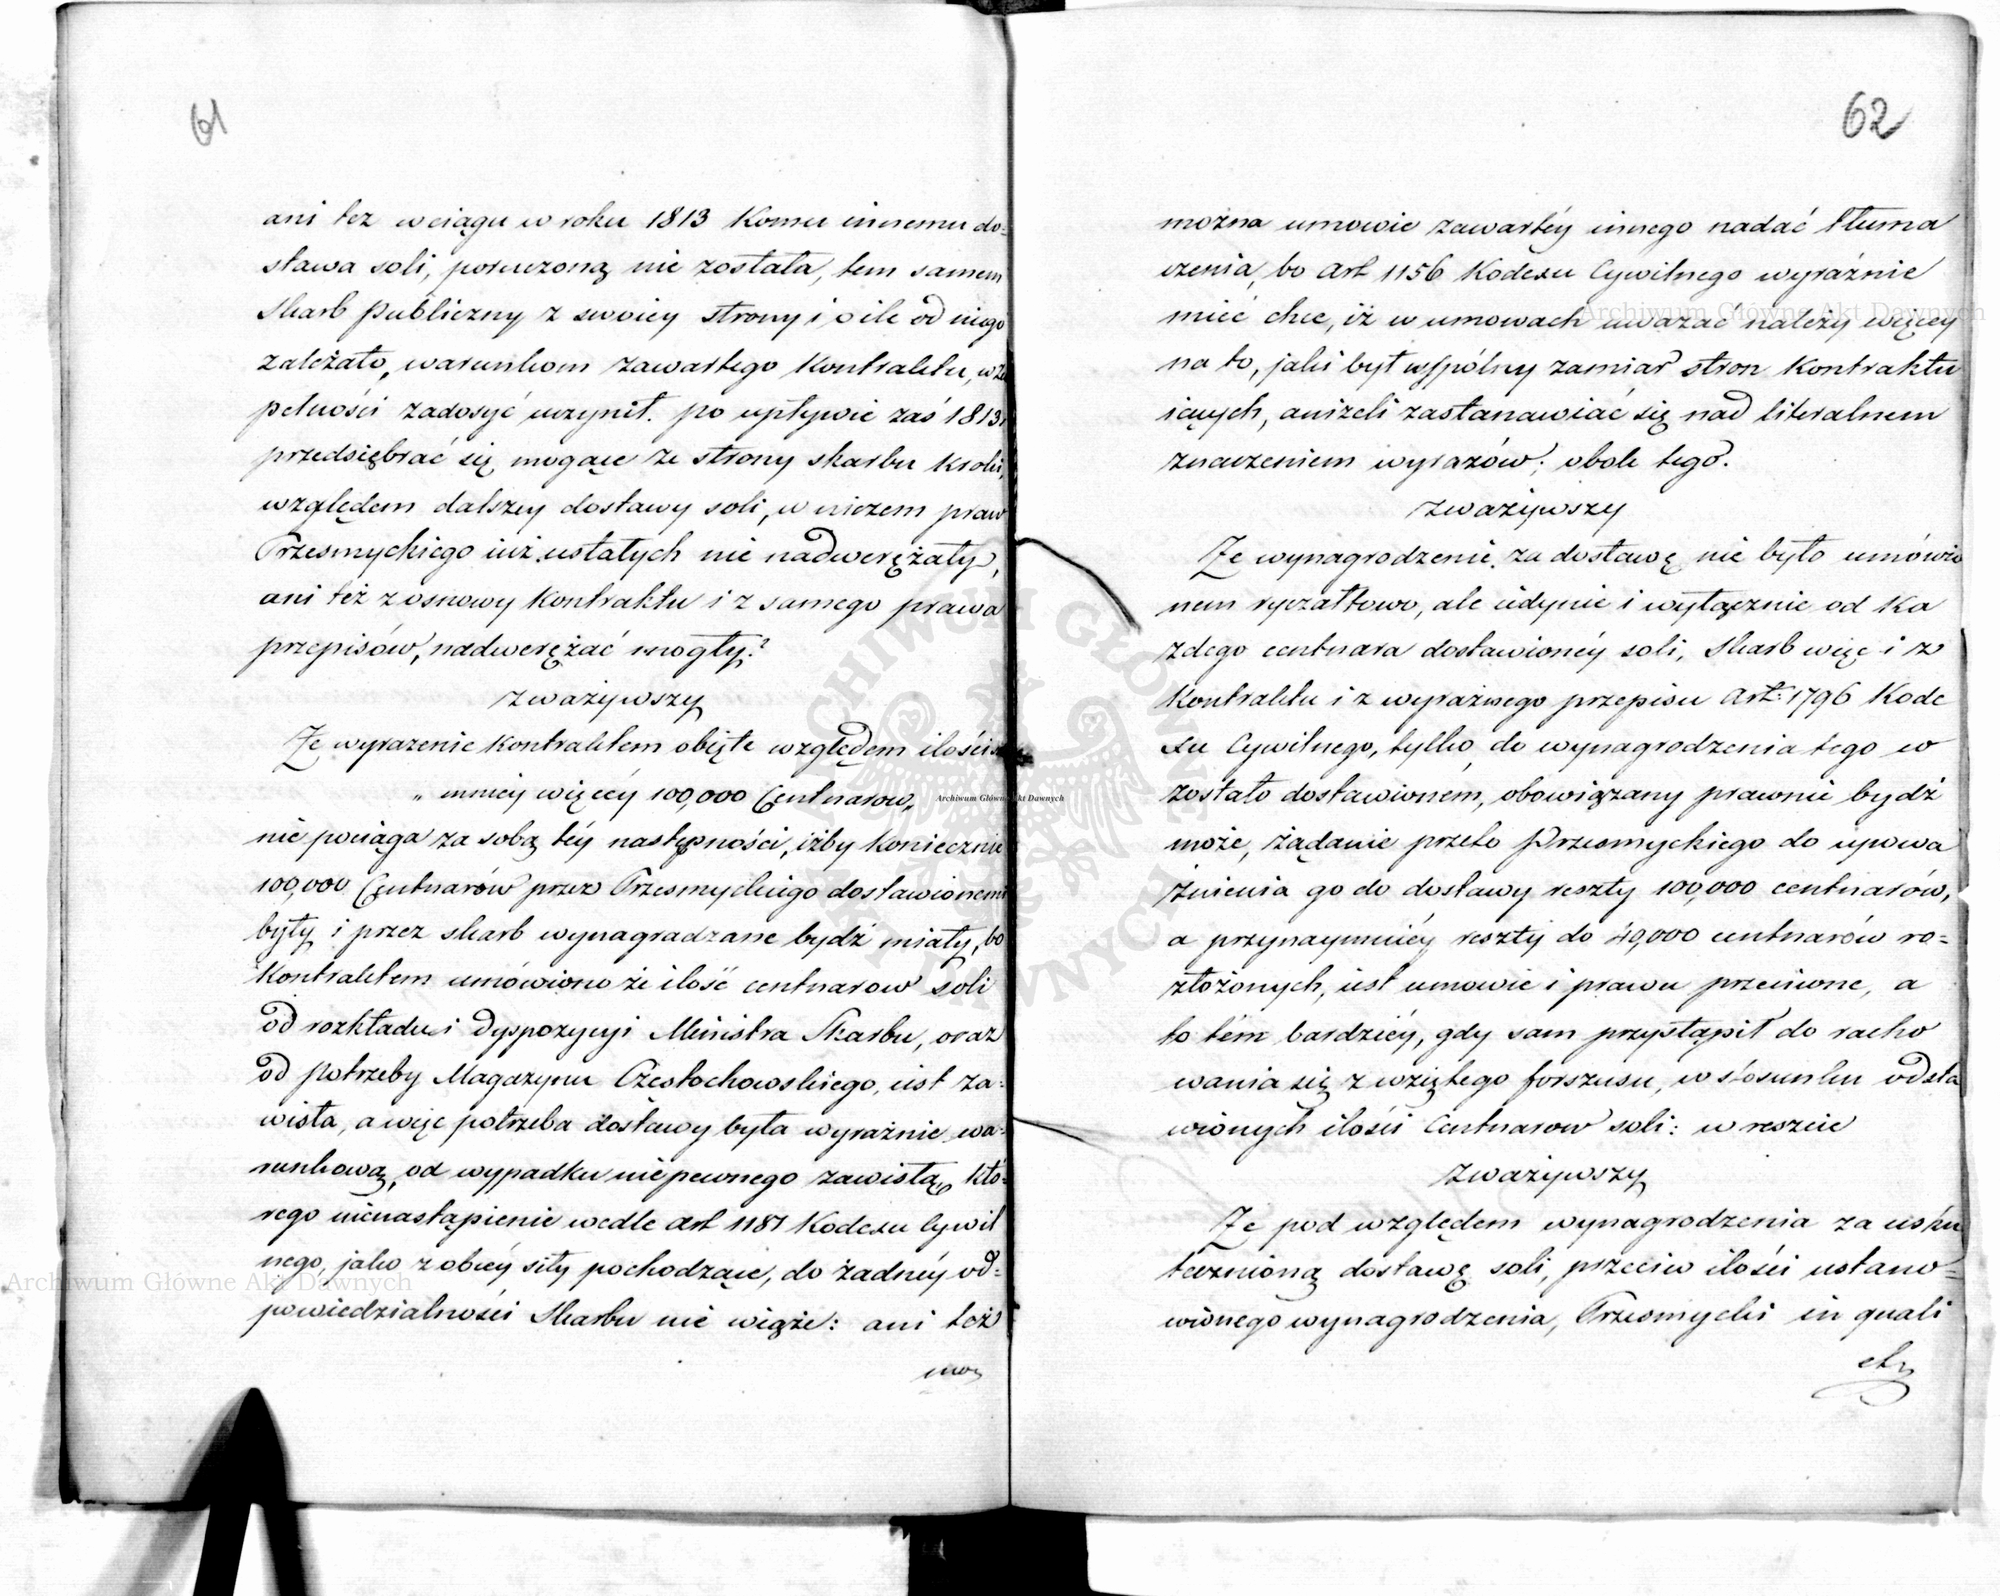 61
ani tez w ciągu w roku 1813 Komu innemu do-
stawa soli, poruczoną nie została, tem samem
Skarb publiczny z swoiey strony i o ile od niego
zależało, warunkom zawartego Kontraktu, w zu
pełności zadosyć uczynił. po upływie zaś 1813.
przedsiębrać się mogące ze strony skarbu Kroki,
względem dalszey dostawy soli, w niczem praw
Przesmyckiego iuż ustałych nie nadwerężały,
ani też z osnowy Kontraktu i z samego prawa
przepisów, nadwerężać mogły?
zważywszy
Ze wyrazenie Kontraktem obięte względem ilości
„ mniey więcéy 100,000 Centnarow„
nie pociąga za sobą téy następności, iżby Koniecznie
100,000 Centnarów przez Przesmyckiego dostawionemi
były i przez skarb wynagradzane bydź miały, bo
Kontraktem umówiono że ilość centnarow soli
od rozkładu i dyspozycyi Ministra Skarbu, oraz
od potrzeby Magazynu Częstochowskiego, iest za-
wisła, a więc potrzeba dostawy była wyraźnie wa-
runkową, od wypadku niepewnego zawisłą, któ-
rego nienastąpienie wedle art 1181 Kodexu Cywil
nego, jako z obcéy siły pochodzące, do żadnéy od-
powiedzialności Skarbu nie wiąże: ani też
moz
62
można umowie zawartéy innego nadać tłuma
czenia, bo art 1156 Kodexu Cywilnego wyraźnie
mieć chce, iż w umowach uważać należy więcey
na to, jaki był wspólny zamiar stron Kontraktu
iących, aniżeli zastanawiać się nad literalnem
znaczeniem wyrazów; obok tego.
zważywszy
Ze wynagrodzenie za dostawę nie było umówio
nem ryczałtowo, ale iedynie i wyłącznie od Ka
zdego centnara dostawionéy soli, Skarb więc i z
Kontraktu i z wyraźnego przepisu Art: 1796 Kode
xu Cywilnego, tylko do wynagrodzenia tego w
zostało dostawionem, obowiązany prawnie bydź
może, żądanie przeto Przesmyckiego do upowa
żnienia go do dostawy reszty 100,000 centnarów,
a przynaymniéy reszty do 40,000 centnarów ro-
złożonych, iest umowie i prawu przeciwne, a
to tém bardziéy, gdy sam przystąpił do racho
wania się z wziętego forszusu, w stosunku odsta
wionych ilości Centnarow soli: w reszcie
zważywszy
Ze pod względem wynagrodzenia za usku
tecznioną dostawę soli, przeciw ilości ustano-
wionego wynagrodzenia, Przesmycki in quali
Archiwum Główne Akt Dawnych
Archiwum Główne Akt Dawnych
Archiwum Główne Akt Dawnych
ARCHIWUM GŁÓWNE AKT DAWNYCH